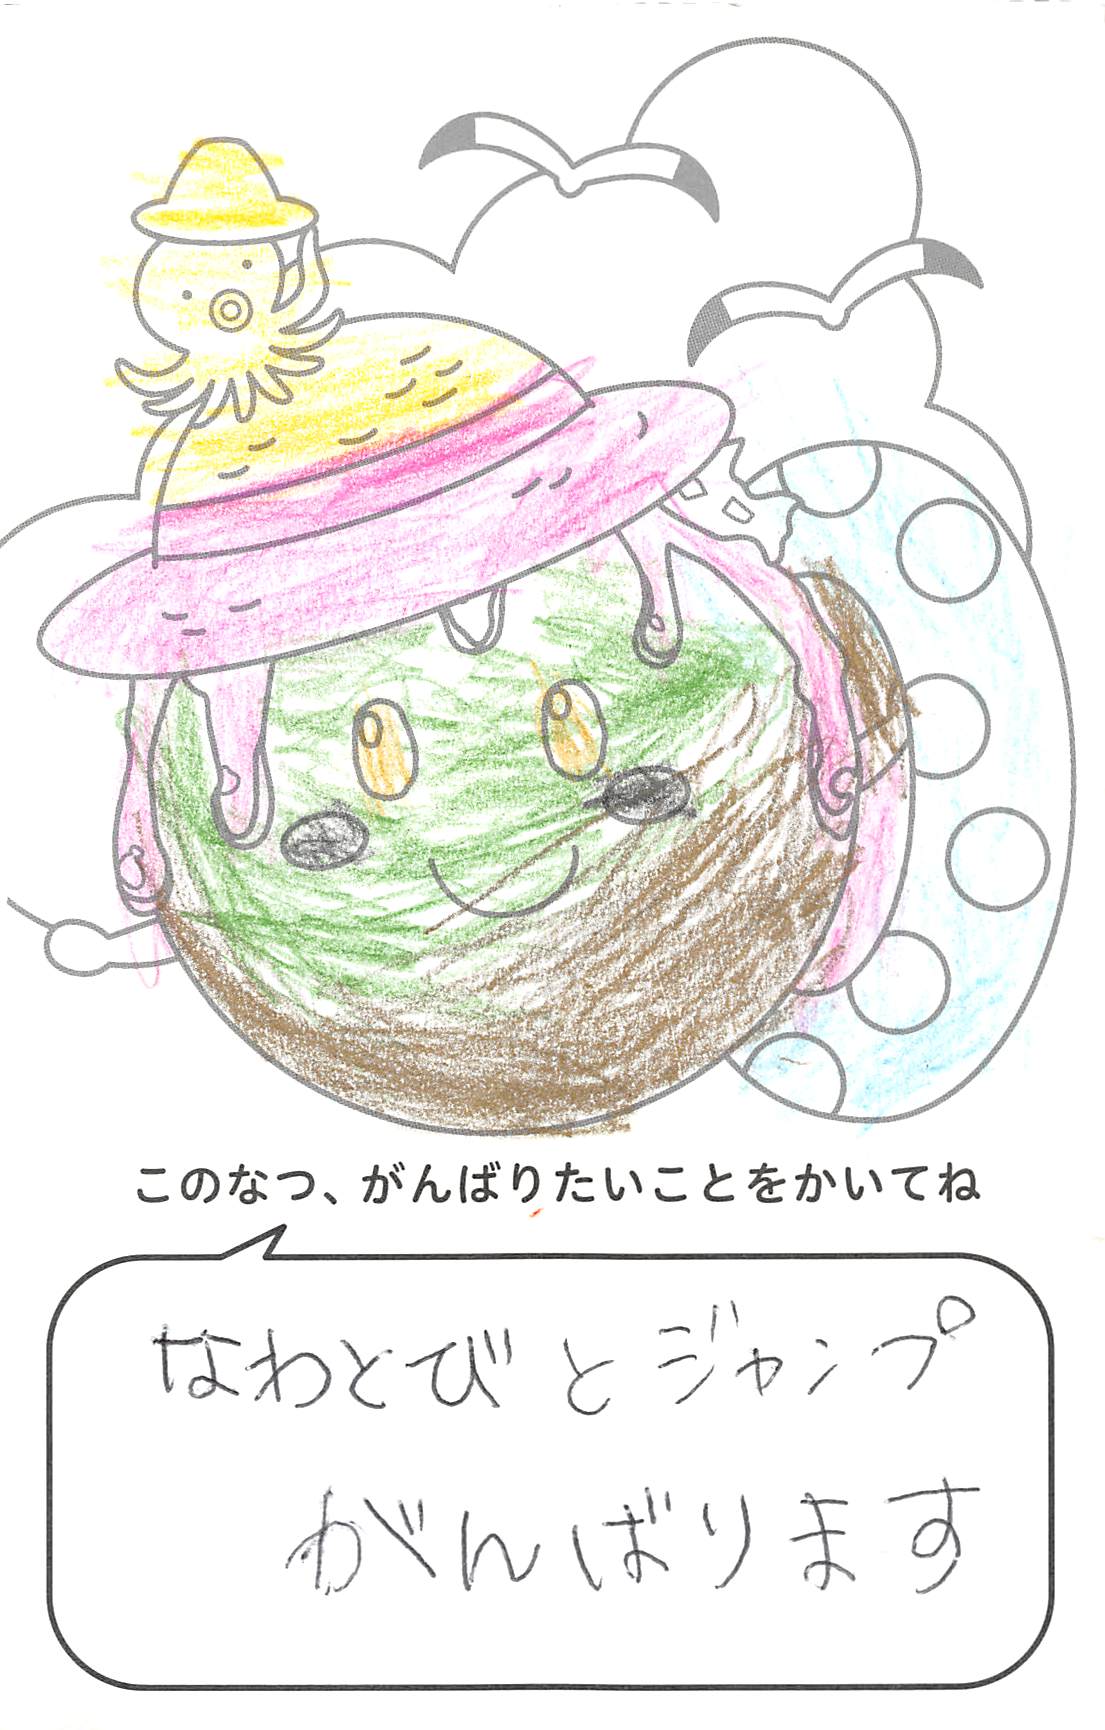 このなつ、がんばりたいことをかいてね
なわとびとジャンプ
がんばります